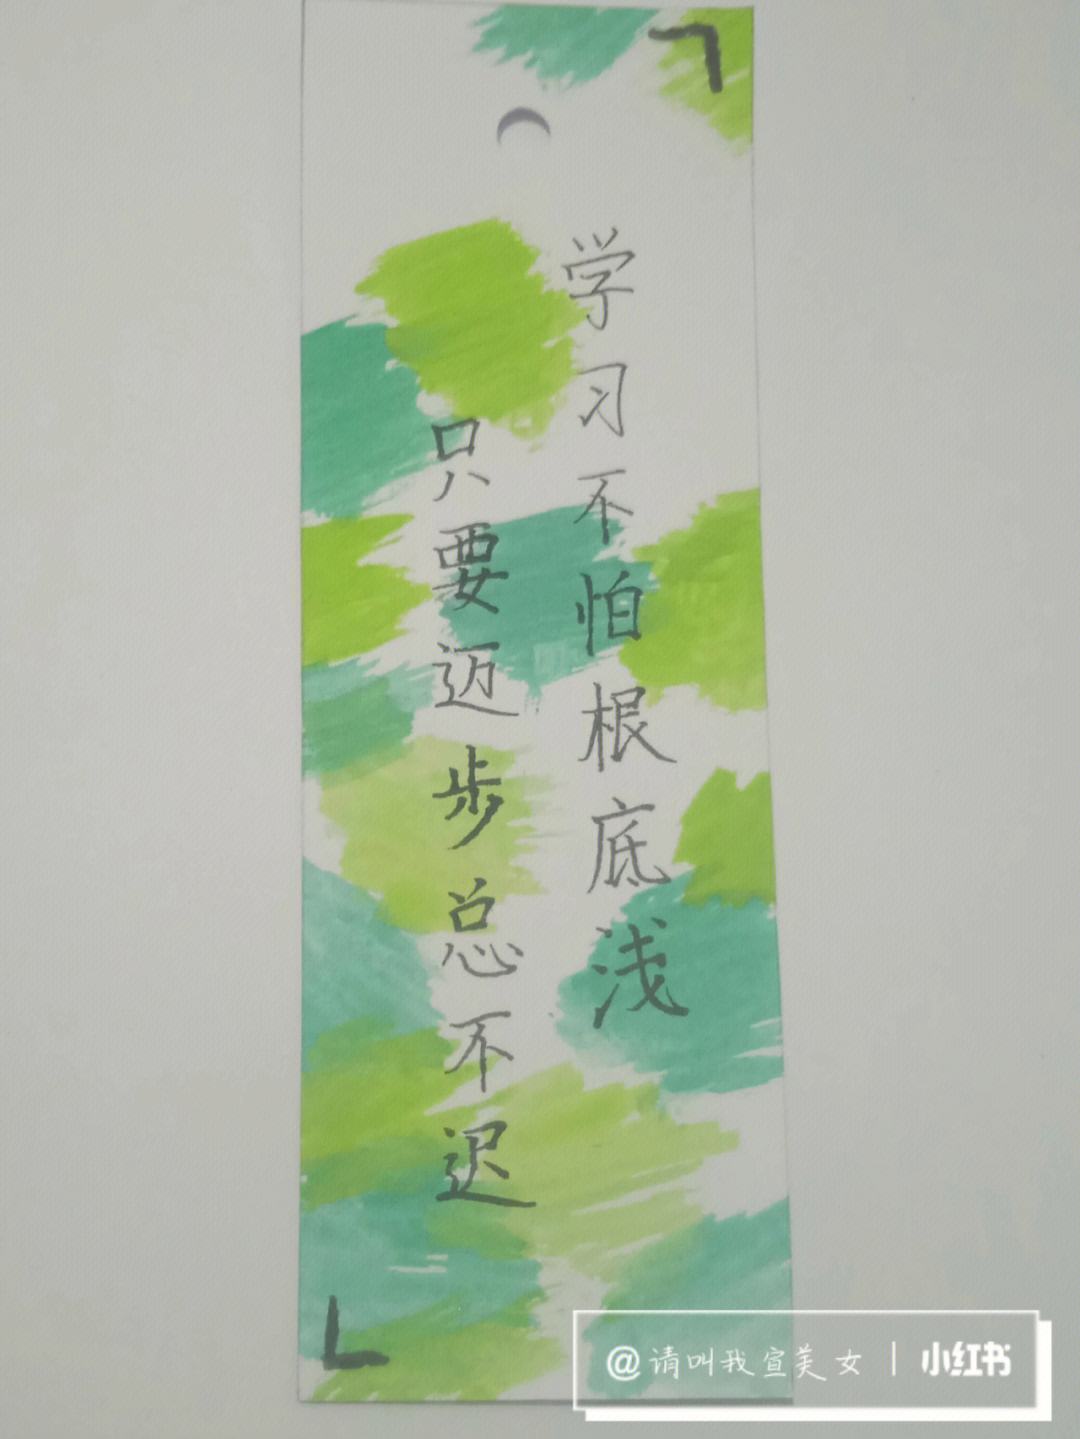 学习不怕根底浅
只要迈步总不迟
@请叫我宣美女 | 小红书